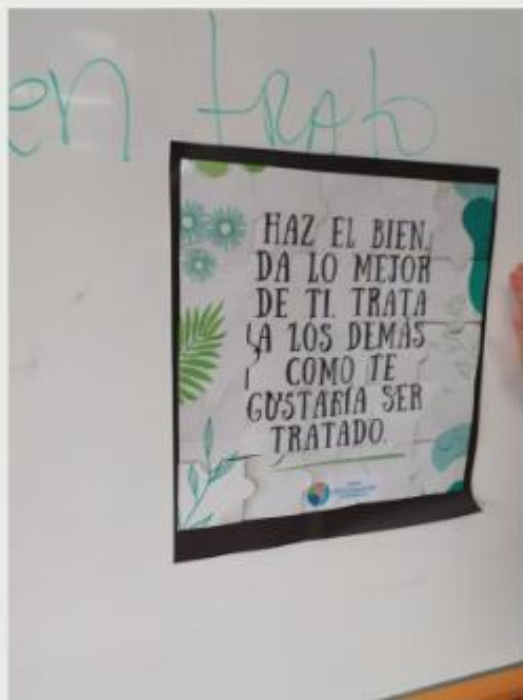 en trato
HAZ EL BIEN,
DA LO MEJOR
DE TI. TRATA
A LOS DEMÁS
COMO TE
GUSTARÍA SER
TRATADO.